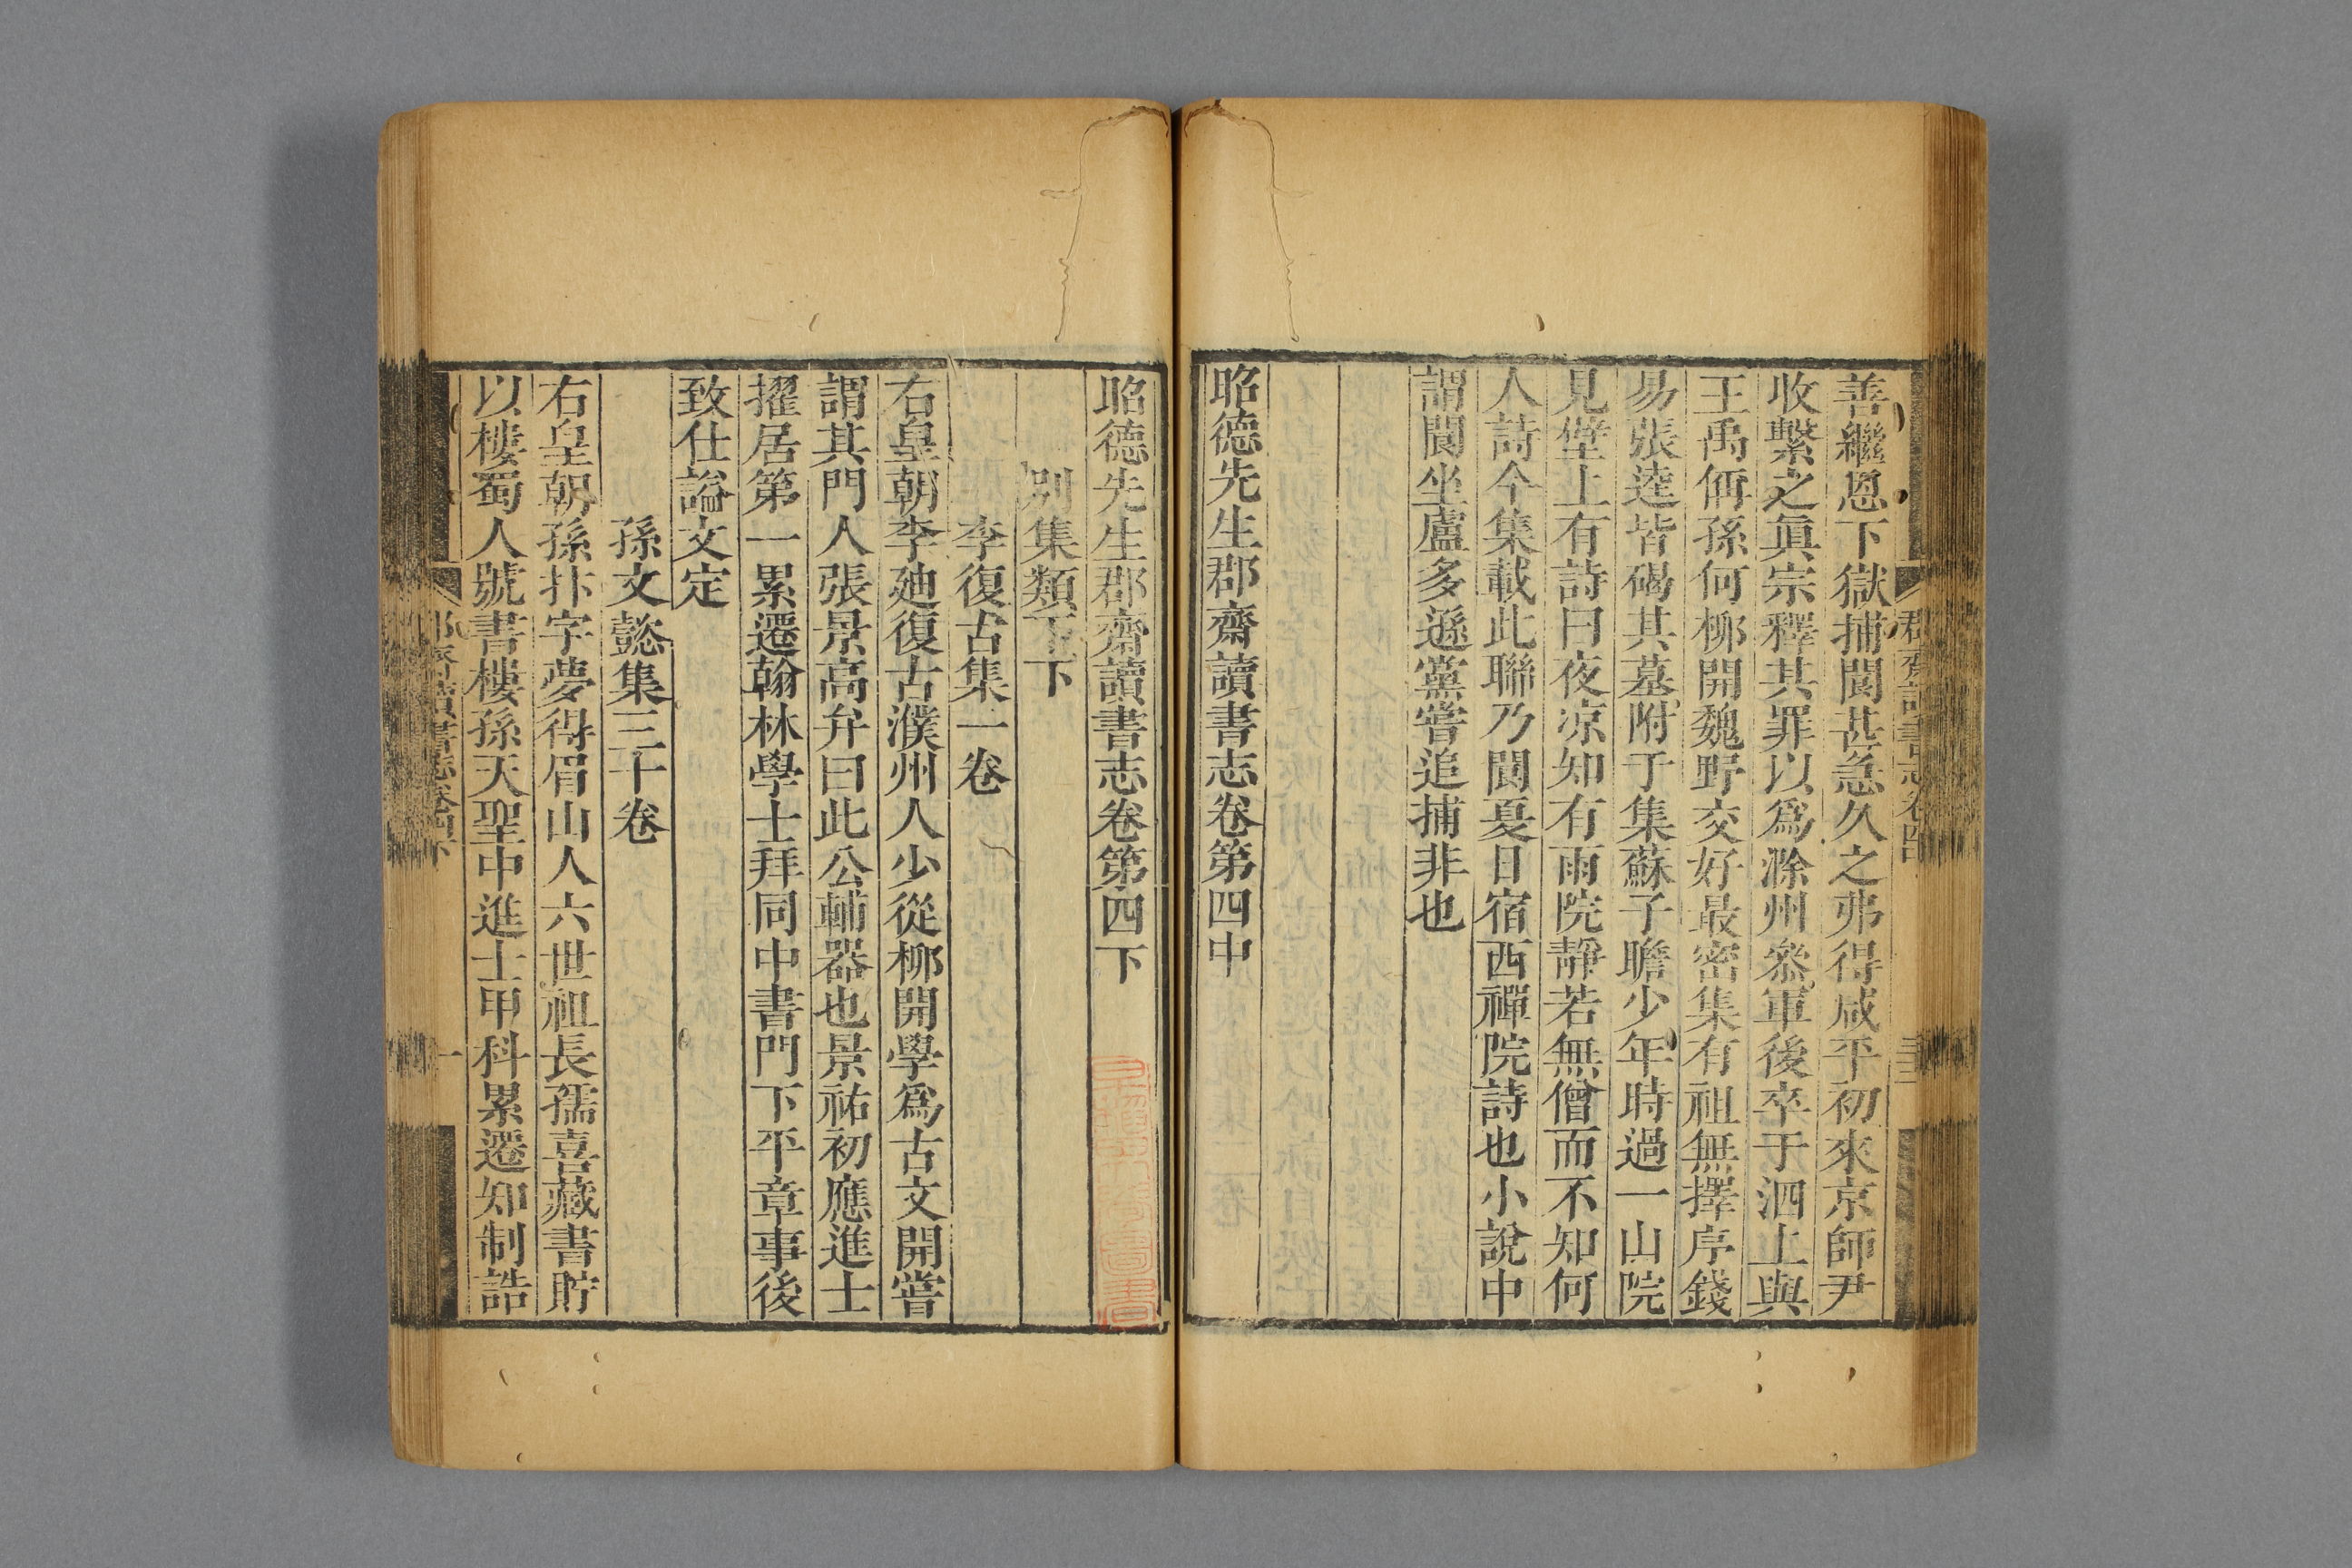 善繼恩下獄捕閬甚急久之弗得咸平初來京師尹
收繫之眞宗釋其罪以爲滁州叅軍後卒于泗上與
王禹偁孫何桺開魏野交好最密集有祖無擇序錢
易張逵皆碣其墓附于集蘇子瞻少年時過一山院
見壁上有詩曰夜凉知有雨院靜若無僧而不知何
人詩今集載此聯乃閬夏日宿西禪院詩也小說中
謂閬坐盧多遜黨嘗追捕非也
昭德先生郡齋讀書志卷第四中
昭德先生郡齋讀書志卷第四下
別集類下下
李復古集一卷
右皇朝李廸復古濮州人少從桺開學爲古文開嘗
謂其門人張景高弁曰此公輔器也景祐初應進士
擢居第一累遷翰林學士拜同中書門下平章事後
致仕謚文定
孫文懿集三十卷
右皇朝孫抃字夢得眉山人六世祖長孺喜藏書貯
以樓蜀人號書樓孫天聖中進士甲科累遷知制誥